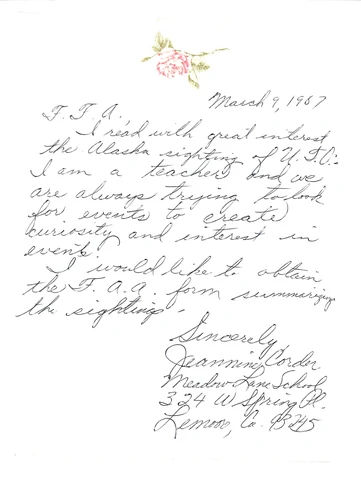 March 9, 1987
F. F. A.
I read with great interest
the Alaska sighting of U.F.O.
I am a teacher and we
are always trying to look
for events to create
curiosity and interest in
events.
I would like to obtain
the F. A. A. form summarizing
the sightings.
Sincerely
Jeannine Corder
Meadow Lane School
324 W Spring Pl.
Lemoore, Ca. 93245